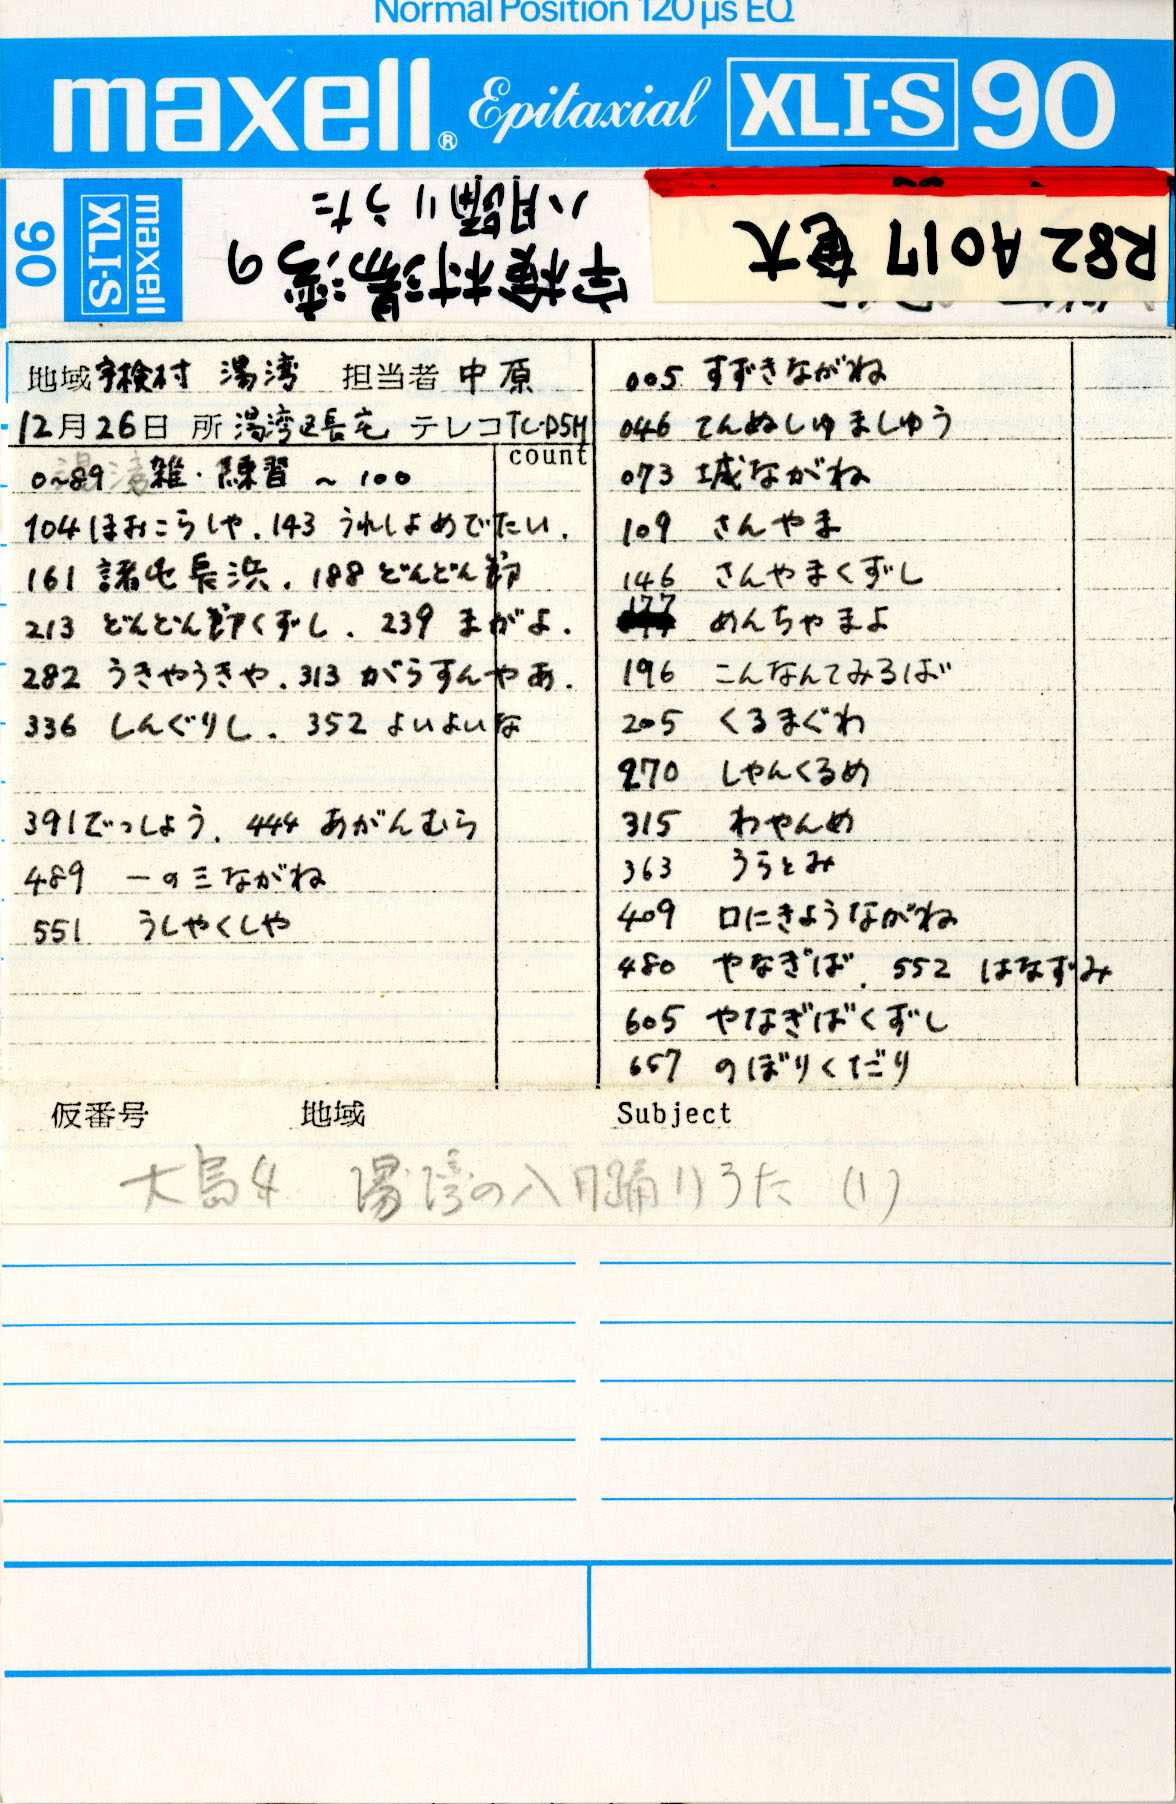 Normal Position 120 µs EQ
maxell® Epitaxial XLI-S 90
R82 A017 奄大
宇検村湯湾の
八月踊りうた
maxell
XLI-S
90
地域 宇検村 湯湾 担当者 中原
12月26日 所 湯湾区長宅 テレコ TC-D5M
count
0~89 雑・練習 ~ 100
104 ほおこらしゃ. 143 うれしよめでたい.
161 諸屯長浜. 188 どんどん節
213 どんどん節くずし. 239 まがよ.
282 うきやうきや. 313 がらすんやあ.
336 しんぐりし. 352 よいよいな
391 でっしよう. 444 あがんむら
489 一の三ながね
551 うしやくしや
005 すずきながね
046 てんぬしゆましゆう
073 城ながね
109 さんやま
146 さんやまくずし
177 めんちゃまよ
196 こんなんてみるば
205 くるまぐわ
270 しやんくるめ
315 わやんめ
363 うらとみ
409 口にきようながね
480 やなぎば. 552 はなずみ
605 やなぎばくずし
657 のぼりくだり
仮番号 地域 Subject
大島4 湯湾の八月踊りうた (1)